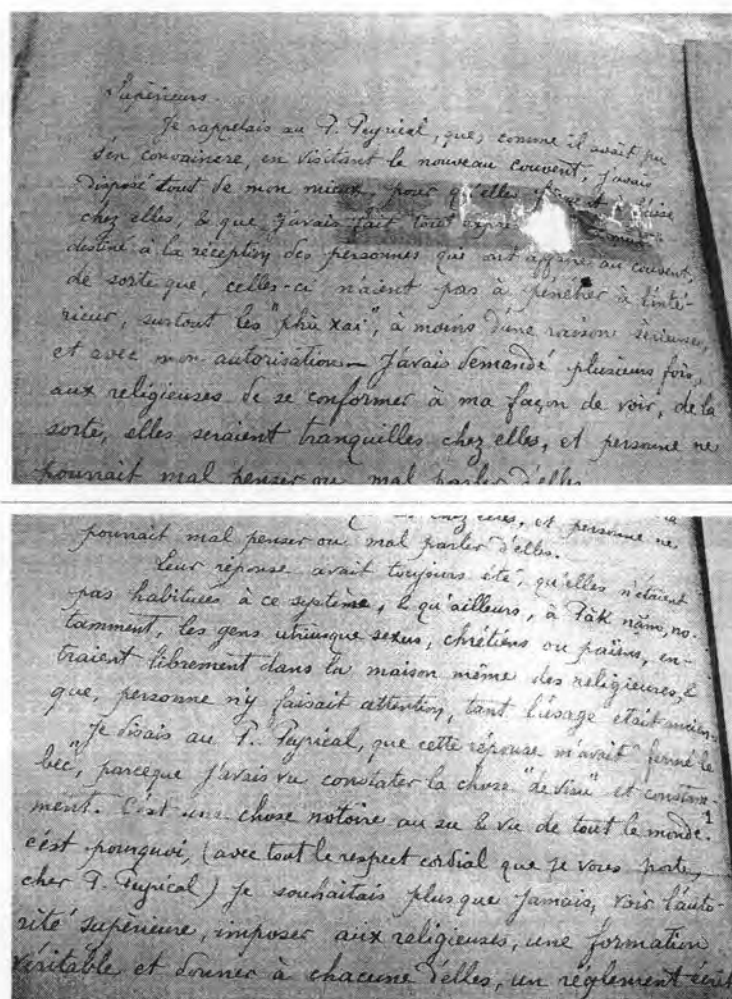 Supérieurs.
Je rappelais au P. Peyrical, que, comme il avait pu
s'en convaincre, en visitant le nouveau couvent, j'avais
disposé tout de mon mieux, pour qu'elles à l'aise
chez elles, & que j'avais fait tout
destiné à la réception des personnes qui ont affaire au couvent,
de sorte que, celles-ci n'aient pas à pénétrer à l'inté-
rieur, surtout les "phù xai", à moins d'une raison sérieuse,
et avec mon autorisation — J'avais demandé plusieurs fois,
aux religieuses de se conformer à ma façon de voir, de la
sorte, elles seraient tranquilles chez elles, et personne ne
pourrait mal penser ou mal parler d'elles
chez elles, et personne ne
pourrait mal penser ou mal parler d'elles.
Leur réponse avait toujours été, qu'elles n'étaient
pas habituées à ce système, & qu'ailleurs, à Pàk năm, no-
tamment, les gens utriusque sexus, chrétiens ou païens, en-
traient librement dans la maison même des religieuses, &
que, personne n'y faisait attention, tant l'usage était ancien.
Je disais au P. Peyrical, que cette réponse m'avait "fermé le
bec", parceque j'avais vu constater la chose "de visu" et constam-
ment. C'est une chose notoire au su & vu de tout le monde.¹
c'est pourquoi, (avec tout le respect cordial que je vous porte,
cher P. Peyrical) je souhaitais plus que jamais, voir l'auto-
rité supérieure, imposer aux religieuses, une formation
véritable et donner à chacune d'elles, un règlement écrit